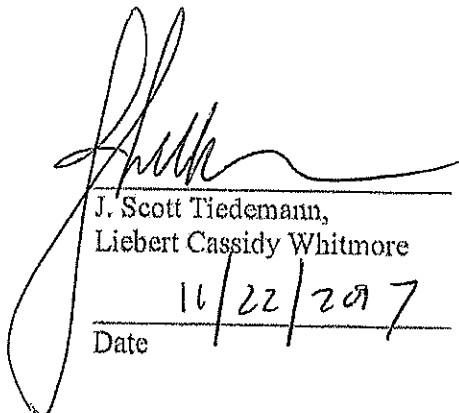 J. Scott Tiedemann,
Liebert Cassidy Whitmore
11/22/2017
Date